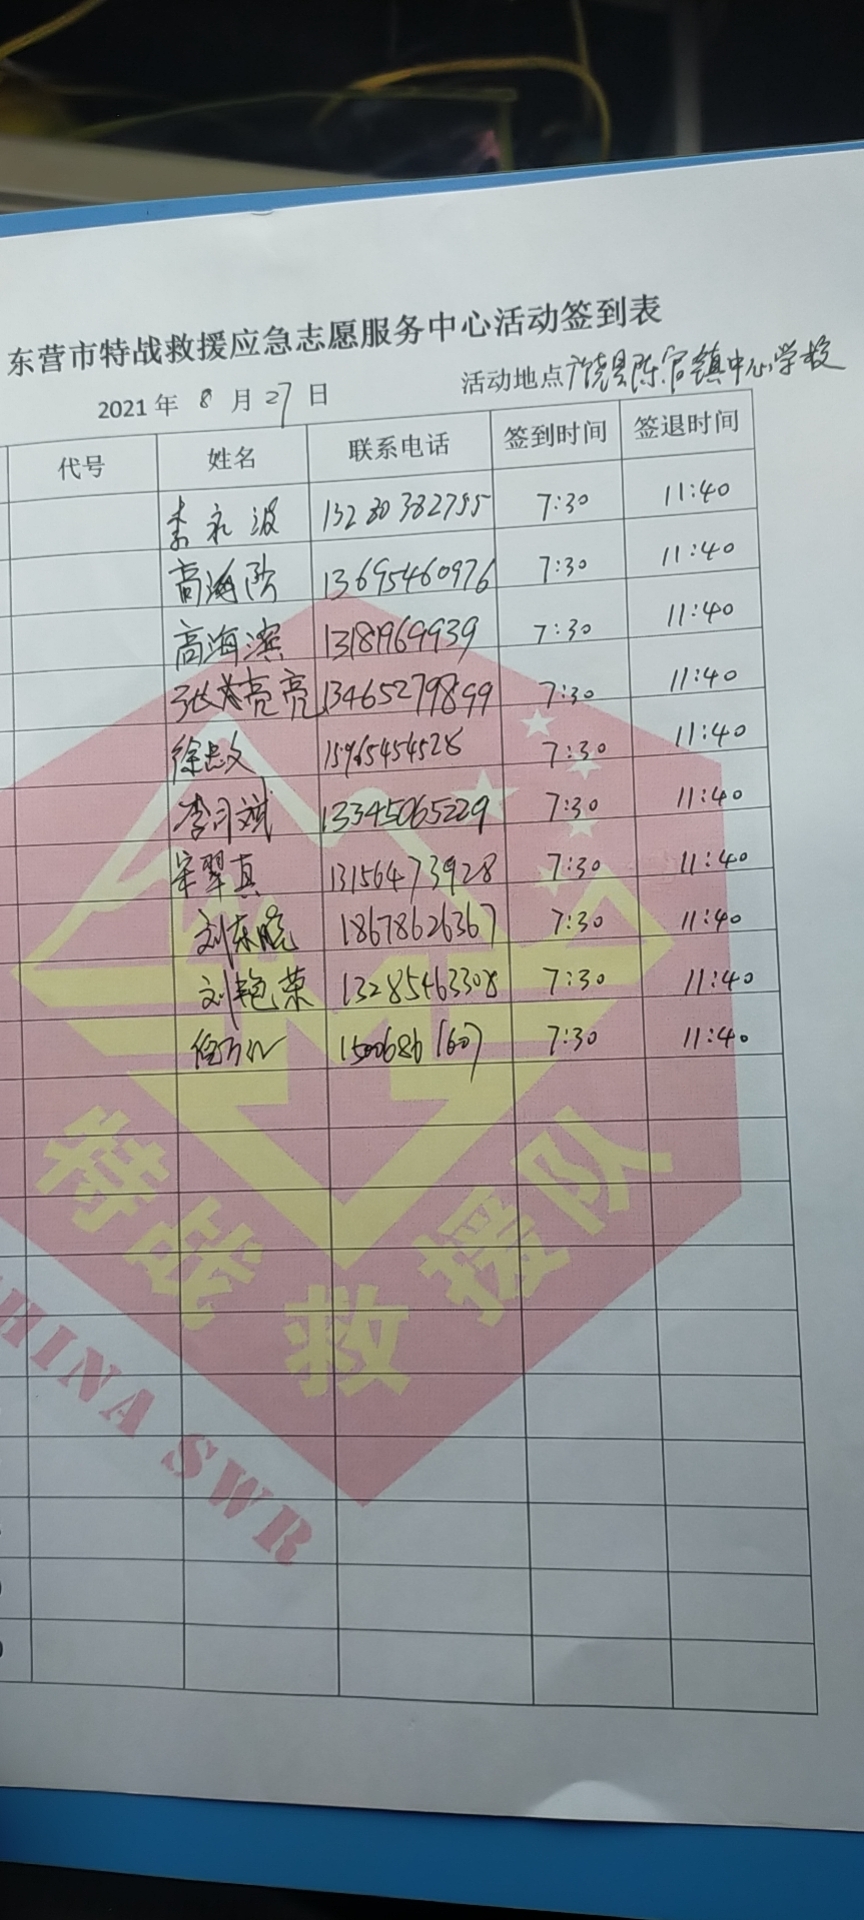 东营市特战救援应急志愿服务中心活动签到表
2021 年 8 月 27 日 活动地点 广饶县陈官镇中心学校
代号 姓名 联系电话 签到时间 签退时间
李永波 13280382755 7:30 11:40
高海 13695460976 7:30 11:40
高海滨 13181969939 7:30 11:40
张 亮亮 13465279899 7:30 11:40
徐忠文 15965454528 7:30 11:40
李习斌 13345065229 7:30 11:40
宋翠真 13156473928 7:30 11:40
刘东晓 18678626367 7:30 11:40
刘艳荣 13285463308 7:30 11:40
7:30 11:40
特战救援队
HINA SWR